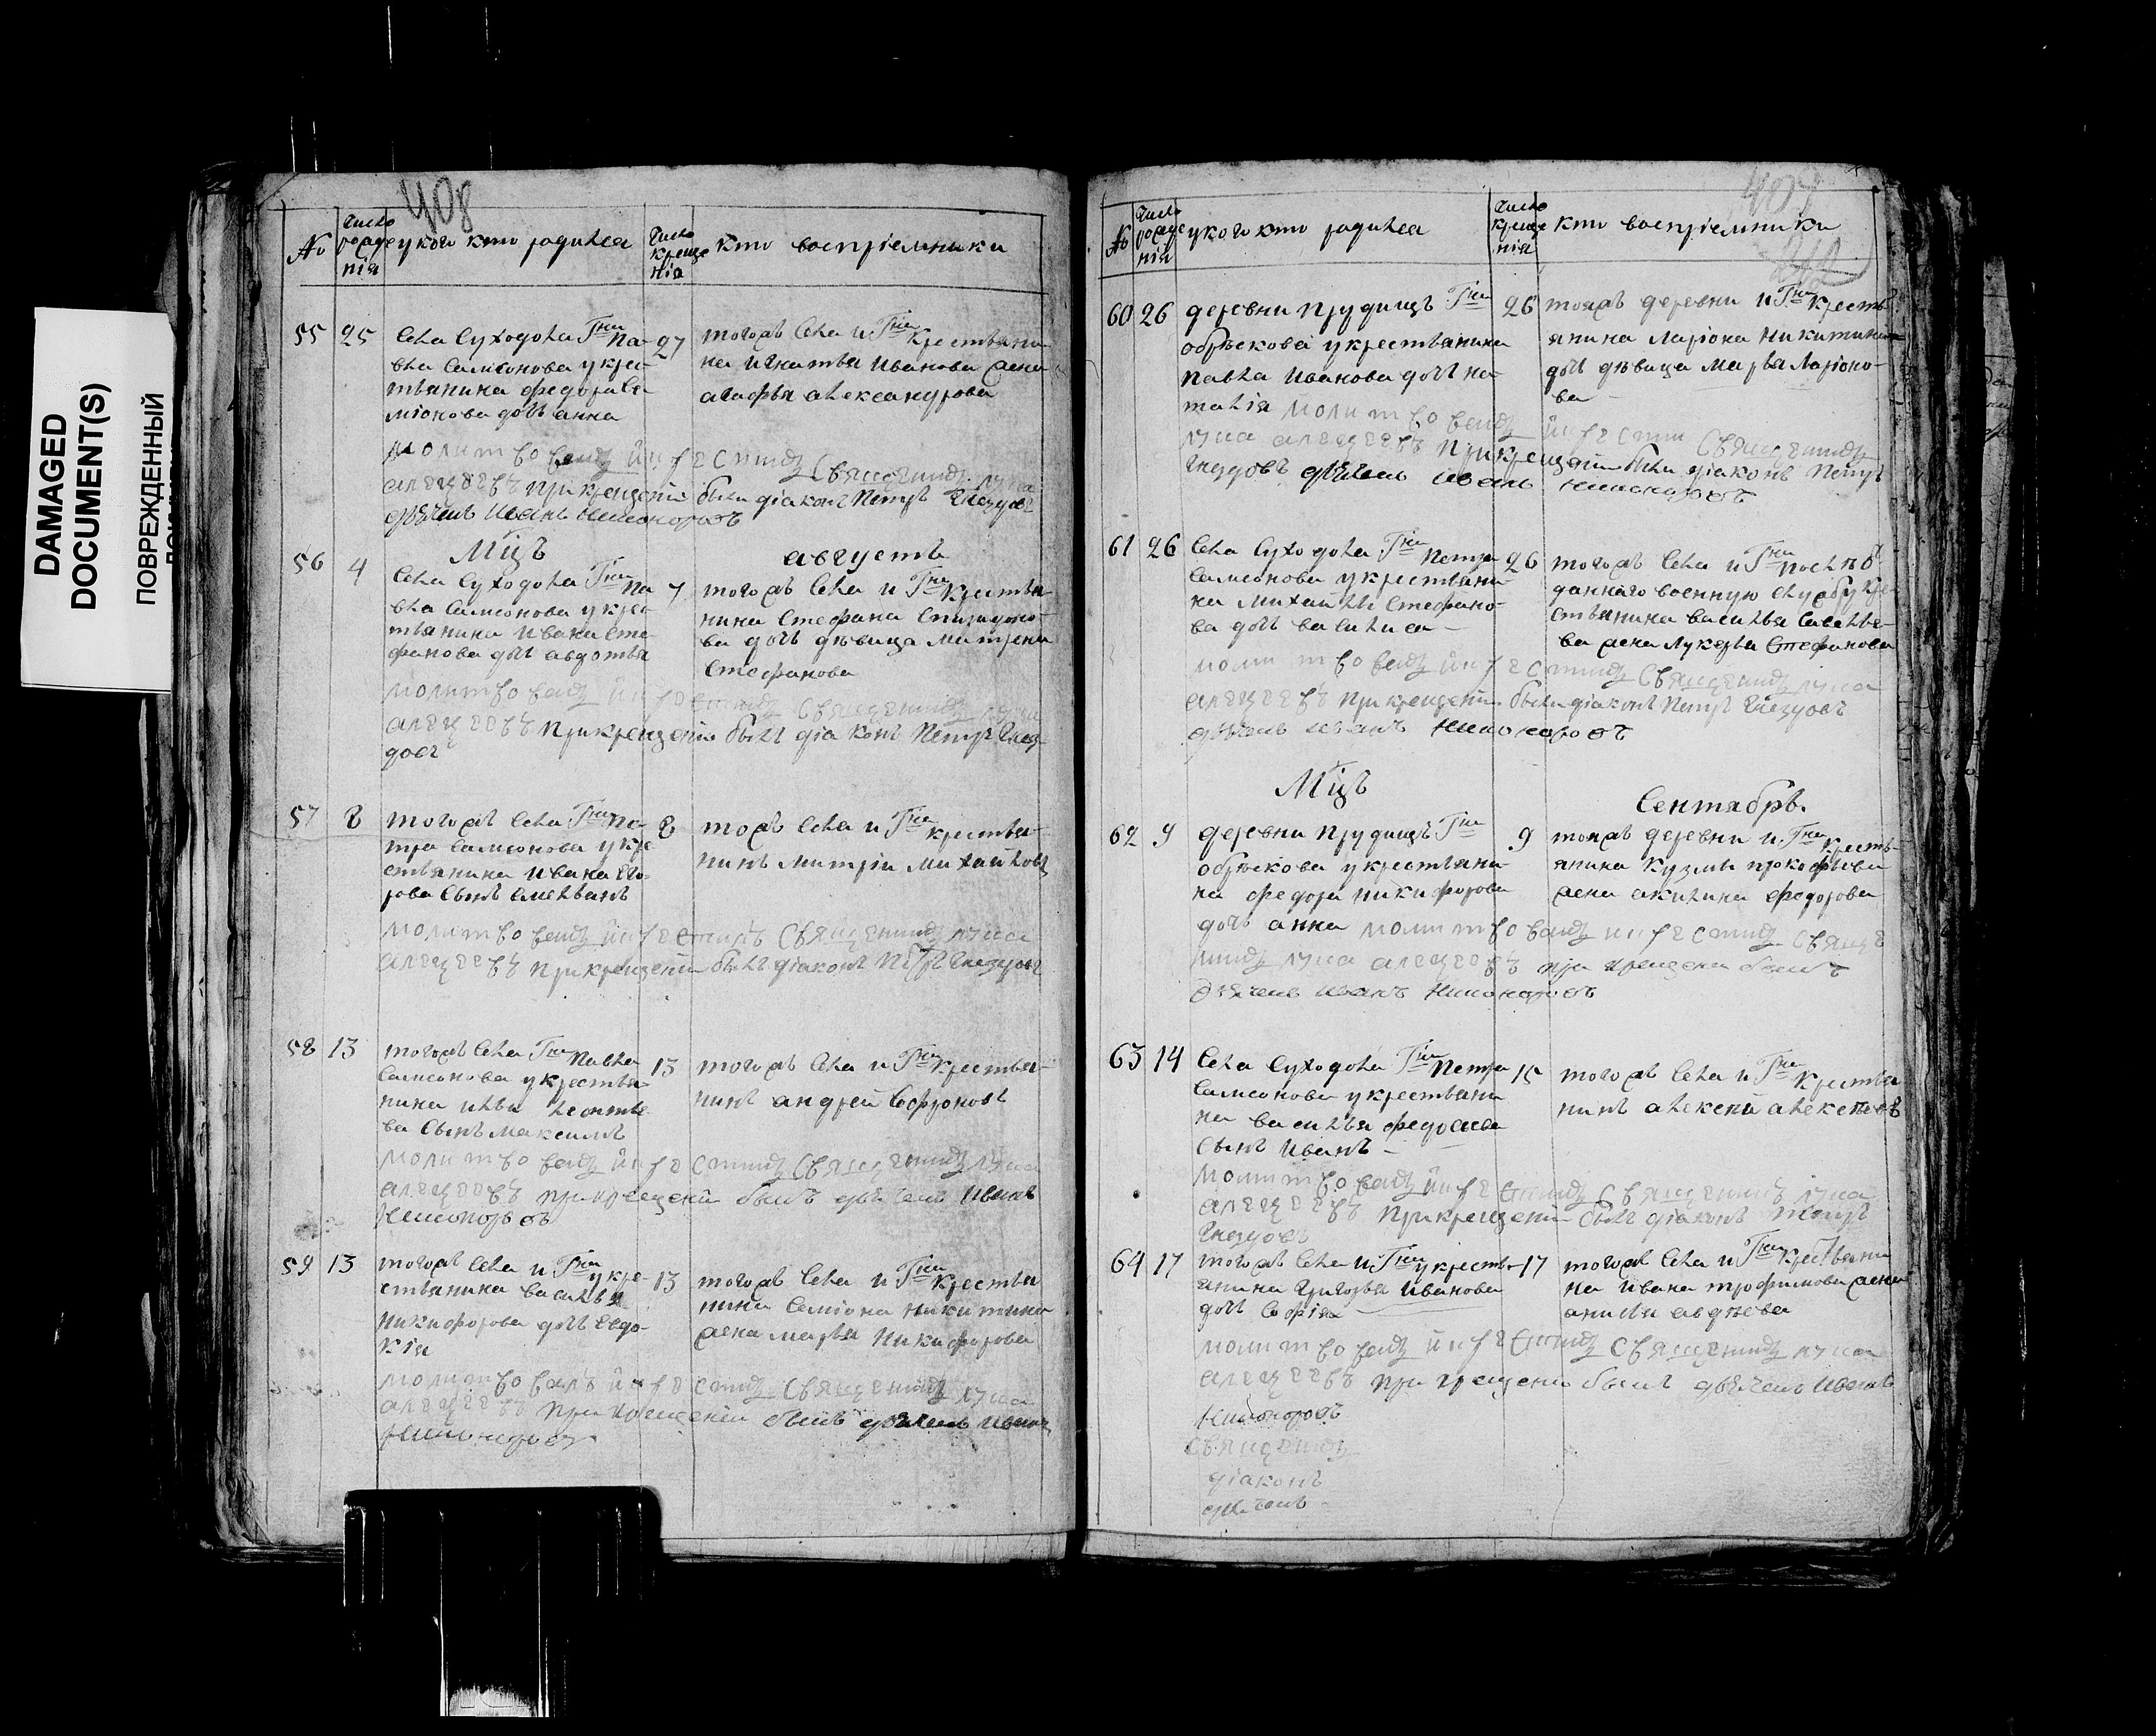 DAMAGED
DOCUMENT(S)
ПОВРЕЖДЕННЫЙ
408
№
Число рожде нія
у кого кто родился
Число креще нія
кто воспріемники
55 25
села Суходола Гна Па-
вла Самсонова у крес-
тьянина федора Се
міонова дочь анна
27
тогожъ села и Гна крестьяни-
на игнатья Иванова жена
агафья александрова
молитвовалъ и крестилъ Священникъ лука
алеѯеевъ при крещеніи были діаконъ Петръ Гнездовъ
дьячекъ Иванъ Никоноровъ
Мцъ августъ
56 4
села Суходола Гна Па
вла Самсонова у крес
тьянина ивана Сте
фанова дочь авдотья
7
тогожъ села и Гна крестья-
нина Стефана Спиридоно-
ва дочь дѣвица матрена
Стефанова
молитвовалъ и крестилъ Священникъ лука
алеѯеевъ при крещеніи былъ діаконъ Петръ Гнез-
довъ
57 8
тогожъ села Гна Пе-
тра Самсонова у кре
стьянина ивана Его-
рова сынъ емельянъ
8
тожъ села и Гна крестья-
нинъ митрій михайловъ
молитвовалъ и крестилъ Священникъ лука
алеѯеевъ при крещеніи былъ діаконъ Петръ Гнездовъ
58 13
тогожъ села Гна Павла
Самсонова у крестья-
нина ильи леонтье
ва сынъ максимъ
13
тогожъ села и Гна крестья-
нинъ андрей Софроновъ
молитвовалъ и крестилъ Священникъ лука
алеѯеевъ при крещеніи былъ дьячекъ Иванъ
Никоноровъ
59 13
тогожъ села и Гна у кре-
стьянина василья
никифорова дочь евдо-
кія
13
тогожъ села и Гна крестья
нина Семіона никитина
жена марья никифорова
молитвовалъ и крестилъ Священникъ лука
алеѯеевъ при крещеніи былъ дьячекъ Иванъ
Никоноровъ
№
Число рожде нія
у кого кто родился
Число креще нія
кто воспріемники
60 26
деревни прудищъ Гна
обрѣскова у крестьянина
павла Иванова дочь на-
талія
26
тояжъ деревни и Гна кресть-
янина ларіона никитина
дочь дѣвица марья ларіоно-
ва
молитвовалъ и крестилъ Священникъ
лука алеѯеевъ при крещеніи были діаконъ Петръ
Гнездовъ дьячекъ Иванъ Никоноровъ
61 26
села Суходола Гна Петра
Самсонова у крестьяни-
на михайлы Стефано-
ва дочь василиса
26
тогожъ села и Гна послѣ от
даннаго военную службу кре
стьянина василья Савелье-
ва жена лукерья Стефанова
молитвовалъ и крестилъ Священникъ лука
алеѯеевъ при крещеніи были діаконъ Петръ Гнездовъ
дьячекъ Иванъ Никоноровъ
Мцъ Сентябрь.
62 9
деревни прудищъ Гна
обрѣскова у крестьяни-
на федора никифорова
дочь анна
9
тояжъ деревни и Гна кресть-
янина кузмы прокофьева
жена акилина федорова
молитвовалъ и крестилъ Священ
никъ лука алеѯеевъ при крещеніи былъ
дьячекъ Иванъ Никоноровъ
63 14
села Суходола Гна Петра
Самсонова у крестьяни
на василья федосеева
сынъ Иванъ
15
тогожъ села и Гна крестья
нинъ алексей алексеевъ
молитвовалъ и крестилъ Священникъ лука
алеѯеевъ при крещеніи былъ діаконъ Петръ
Гнездовъ
64 17
тогожъ села и Гна у кресть-
янина григорья Иванова
дочь Софія
17
тогожъ села и Гна крестьяни
на ивана трофимова жена
анисья авдѣева
молитвовалъ и крестилъ Священникъ лука
алеѯеевъ при крещеніи былъ дьячекъ Иванъ
Никоноровъ
Священникъ
діаконъ
дьячекъ